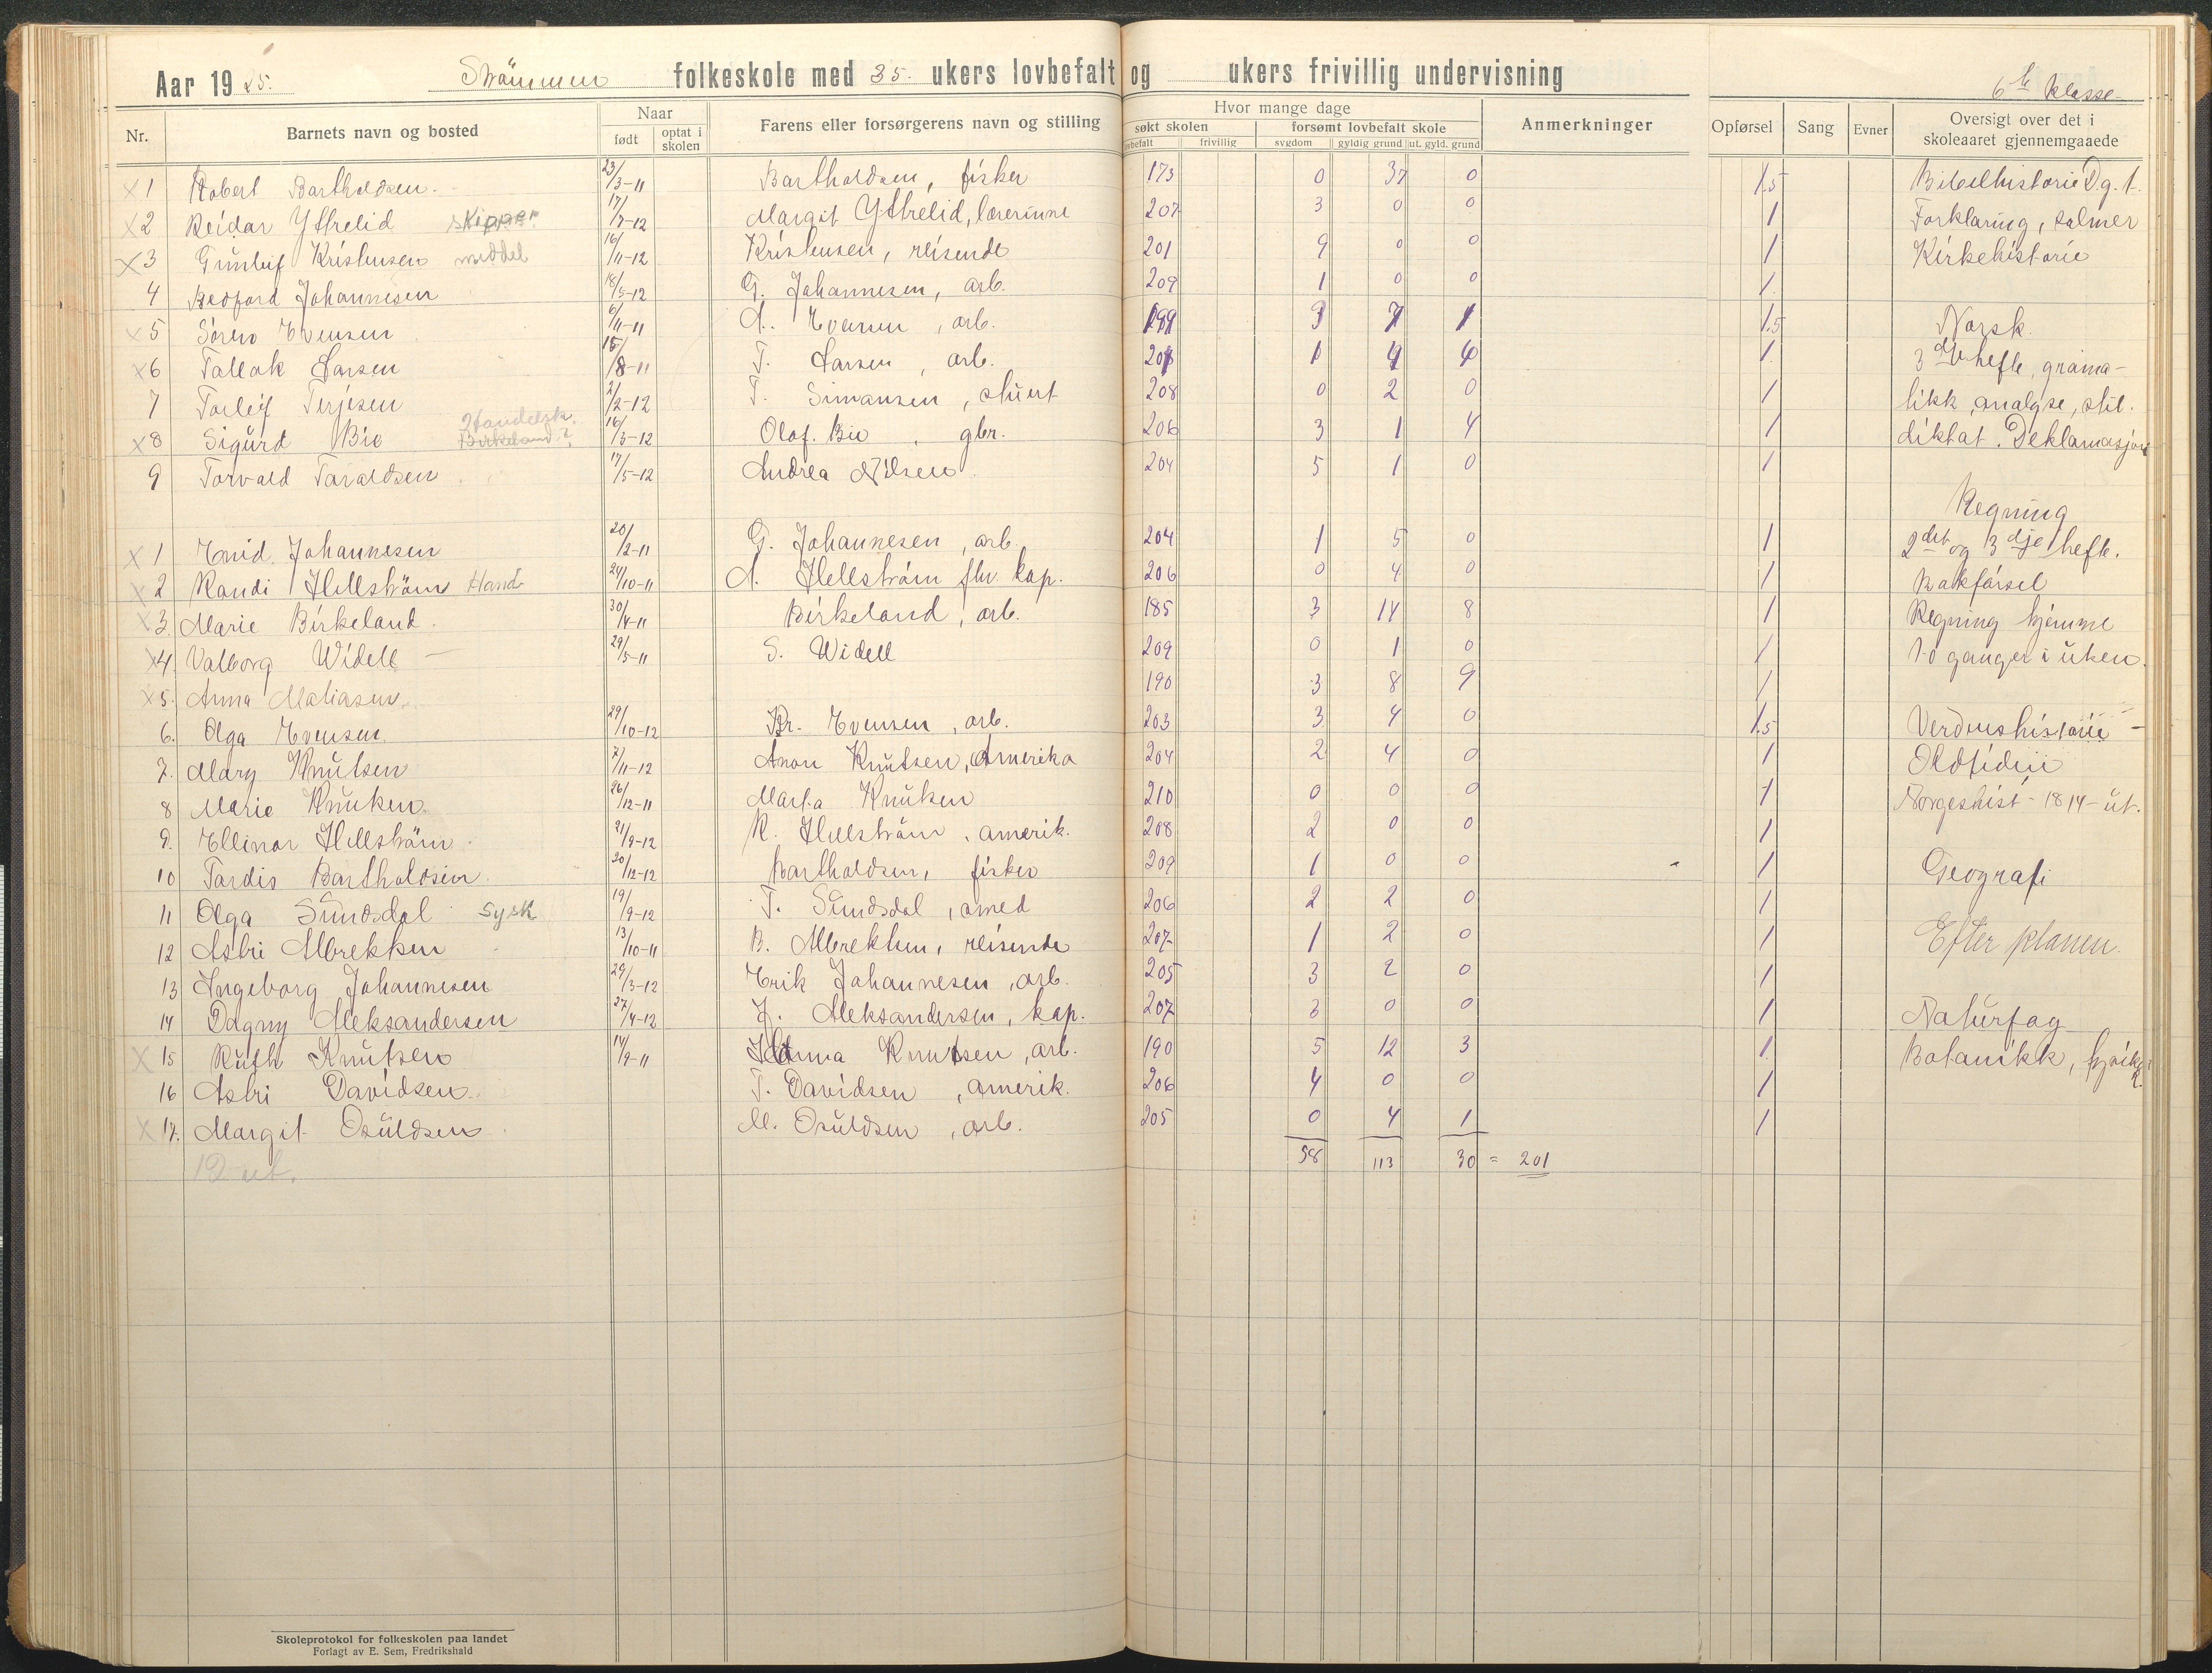 Aar 1925. Strömmen folkeskole med 35. ukers lovbefalt og ukers frivillig undervisning
6te klasse
Nr. Barnets navn og bosted Naar født optat i skolen Farens eller forsørgerens navn og stilling Hvor mange dage søkt skolen lovbefalt frivillig forsømt lovbefalt skole sygdom gyldig grund ut. gyld. grund Anmerkninger Opførsel Sang Evner Oversigt over det i skoleaaret gjennemgaaede
x 1 Robert Bartholdsen. 23/3-11 Bartholdsen, fisker 173 0 37 0 1.5 Bibelhistorie D.g.t.
x 2 Reidar Ytrelid skipper 17/7-12 Margit Ytrelid, lærerinne 207 3 0 0 1 Forklaring, salmer
x 3 Gunleif Kristensen middel 16/11-12 Kristensen, reisende 201 9 0 0 1 Kirkehistorie
4 Bedford Johannesen 18/5-12 G. Johannesen, arb. 209 1 0 0 1
x 5 Sören Evensen 6/11-11 A. Evensen, arb. 199 3 7 1 1.5 Norsk.
x 6 Tallak Larsen 15/8-11 T. Larsen, arb. 1 4 1 3dje hefte, grama-
7 Torleif Terjesen 2/2-12 T. Simonsen, stuert 208 0 2 0 1 tikk, analyse, stil.
x 8 Sigurd Bie Handelsk. Birkeland? 16/3-12 Olaf. Bie, gbr. 206 3 1 4 1 diktat. Deklamasjon
9 Torvald Taraldsen 17/5-12 Andrea Nilsen. 204 5 1 0 1
Regning
x 1 Enid Johannesen 20/2-11 G. Johannesen, arb. 204 1 5 0 1 2det og 3dje hefte.
x 2 Randi Hellström Hand 24/10-11 A. Hellström fhv. kap. 206 0 4 0 1 Bokførsel
x 3. Marie Birkeland. 30/4-11 Birkeland, arb. 185 3 14 8 1 Regning hjemme
x 4. Valborg Widell 29/5-11 S. Widell 209 0 1 0 1 10 ganger i uken.
x 5. Anna Matiasen. 190 3 8 9 1
6. Olga Evensen 29/10-12 Br. Evensen, arb. 203 3 4 0 1.5 Verdenshistorie
7. Mary Knutsen 7/11-12 Anon Knutsen, Amerika 204 2 4 0 1 Oldtiden
8 Marie Knutsen 26/12-11 Marta Knutsen 210 0 0 0 1 Norgeshist - 1814 - ut.
9. Ellinor Hellström 21/9-12 R. Hellström, amerik. 208 2 0 0 1
10 Tordis Bartholdsen. 20/12-12 Bartholdsen, fisker 209 1 0 0 1 Geografi
11 Olga Sundsdal sysk 19/9-12 T. Sundsdal, smed 206 2 2 0 1
12 Astri Albrektsen 13/10-11 B. Albrektsen, reisende 207 1 2 0 1 Efter planen.
13 Ingeborg Johannesen 29/3-12 Erik Johannesen, arb. 205 3 2 0 1
14 Dagny Aleksandersen 27/4-12 J. Aleksandersen, kap. 207 3 0 0 1 Naturfag
x 15 Ruth Knutsen 14/9-11 Anna Knutsen, arb. 190 5 12 3 1 Botanikk, fysikk
16 Astri Davidsen. T. Davidsen, amerik. 206 4 0 0 1
x 17. Margit Osuldsen M. Osuldsen, arb. 205 0 4 1 1
12 ut. 58 113 30 = 201
Skoleprotokol for folkeskolen paa landet
Forlagt av E. Sem, Fredrikshald